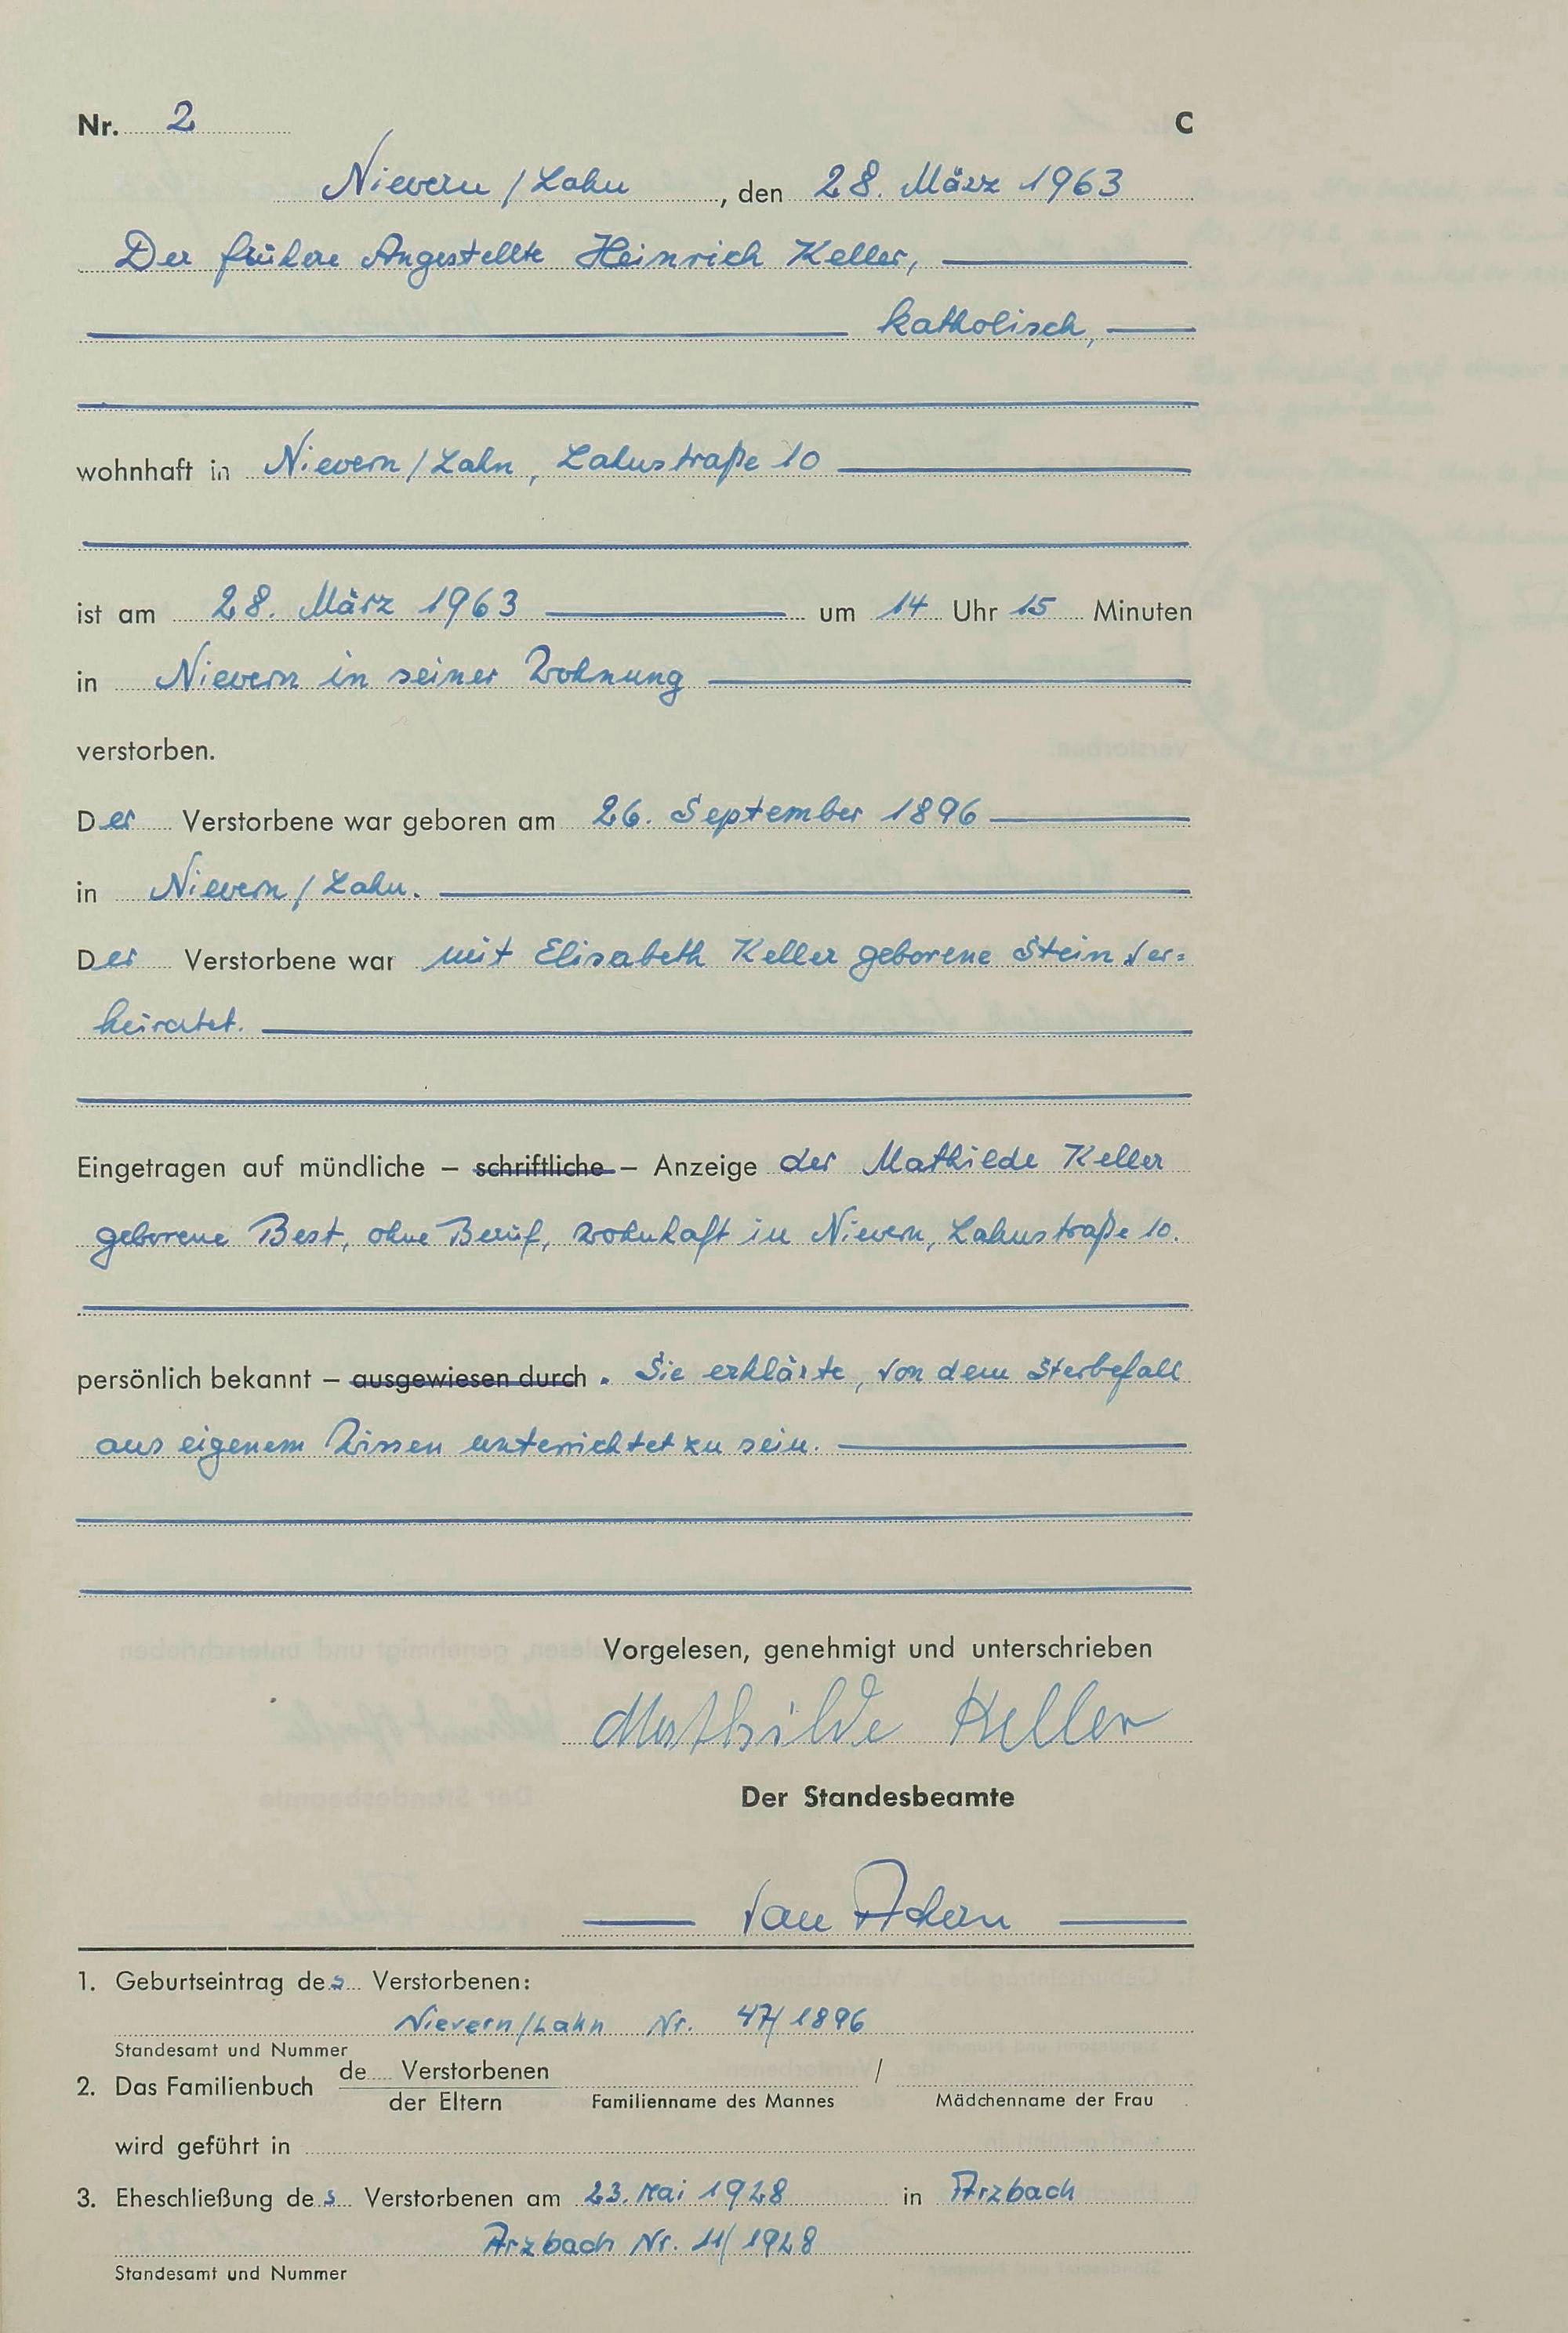 Nr. 2 C
Nievern / Lahn, den 28. März 1963
Der frühere Angestellte Heinrich Keller,
katholisch,
wohnhaft in Nievern / Lahn, Lahnstraße 10
ist am 28. März 1963 um 14 Uhr 15 Minuten
in Nievern in seiner Wohnung
verstorben.
Der Verstorbene war geboren am 26. September 1896
in Nievern / Lahn.
Der Verstorbene war mit Elisabeth Keller geborene Stein ver=
heiratet.
Eingetragen auf mündliche – schriftliche – Anzeige der Mathilde Keller
geborene Best, ohne Beruf, wohnhaft in Nievern, Lahnstraße 10.
persönlich bekannt – ausgewiesen durch . Sie erklärte, von dem Sterbefall
aus eigenem Wissen unterrichtet zu sein.
Vorgelesen, genehmigt und unterschrieben
Mathilde Keller
Der Standesbeamte
van
1. Geburtseintrag des Verstorbenen:
Nievern/Lahn Nr. 47/1896
Standesamt und Nummer
2. Das Familienbuch de Verstorbenen /
der Eltern Familienname des Mannes Mädchenname der Frau
wird geführt in
3. Eheschließung des Verstorbenen am 23. Mai 1928 in Arzbach
Arzbach Nr. 11/1928
Standesamt und Nummer